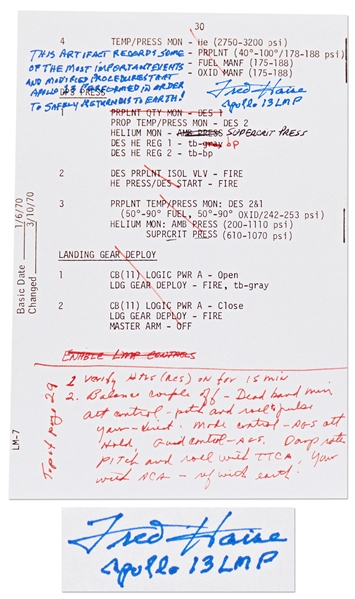 30
4 TEMP/PRESS MON - He (2750-3200 psi)
- PRPLNT (40°-100°/178-188 psi)
FUEL MANF (175-188)
- OXID MANF (175-188)
THIS ARTIFACT RECORDS SOME
OF THE MOST IMPORTANT EVENTS
AND MODIFIED PROCEDURES THAT
APOLLO 13 PERFORMED IN ORDER
TO SAFELY RETURN US TO EARTH!
Fred Haise
Apollo 13 LMP
DES PRESS
1 PRPLNT QTY MON - DES 1
PROP TEMP/PRESS MON - DES 2
HELIUM MON - AMB PRESS SUPERCRIT PRESS
DES HE REG 1 - tb-gray bp
DES HE REG 2 - tb-bp
2 DES PRPLNT ISOL VLV - FIRE
HE PRESS/DES START - FIRE
3 PRPLNT TEMP/PRESS MON: DES 2&1
(50°-90° FUEL, 50°-90° OXID/242-253 psi)
HELIUM MON: AMB PRESS (200-1110 psi)
SUPRCRIT PRESS (610-1070 psi)
LANDING GEAR DEPLOY
1 CB(11) LOGIC PWR A - Open
LDG GEAR DEPLOY - FIRE, tb-gray
2 CB(11) LOGIC PWR A - Close
LDG GEAR DEPLOY - FIRE
MASTER ARM - OFF
Basic Date 1/6/70
Changed 3/10/70
LM-7
ENABLE LMP CONTROLS
1 Verify Htrs (RCS) on for 15 min
2. Balance couple off - Dead band min
att control - pitch and roll - pulse
yaw - Mode control - AGS att
Hold Guid control - AGS. Damp rates
PITCH and roll with TTCA, Yaw
with ACA - with earth.
Top of page 29
Fred Haise
Apollo 13 LMP